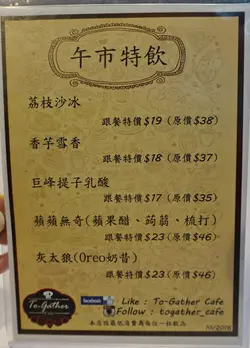 午市特飲
荔枝沙冰
跟餐特價$19 (原價$38)
香芋雪香
跟餐特價$18 (原價$37)
巨峰提子乳酸
跟餐特價$17 (原價$35)
蘋蘋無奇(蘋果醋、蒟蒻、梳打)
跟餐特價$23 (原價$46)
灰太狼(Oreo奶昔)
跟餐特價$23 (原價$46)
To-Gather
facebook
Like : To-Gather Cafe
Follow : togather_cafe
本店設最低消費為每位一杯飲品